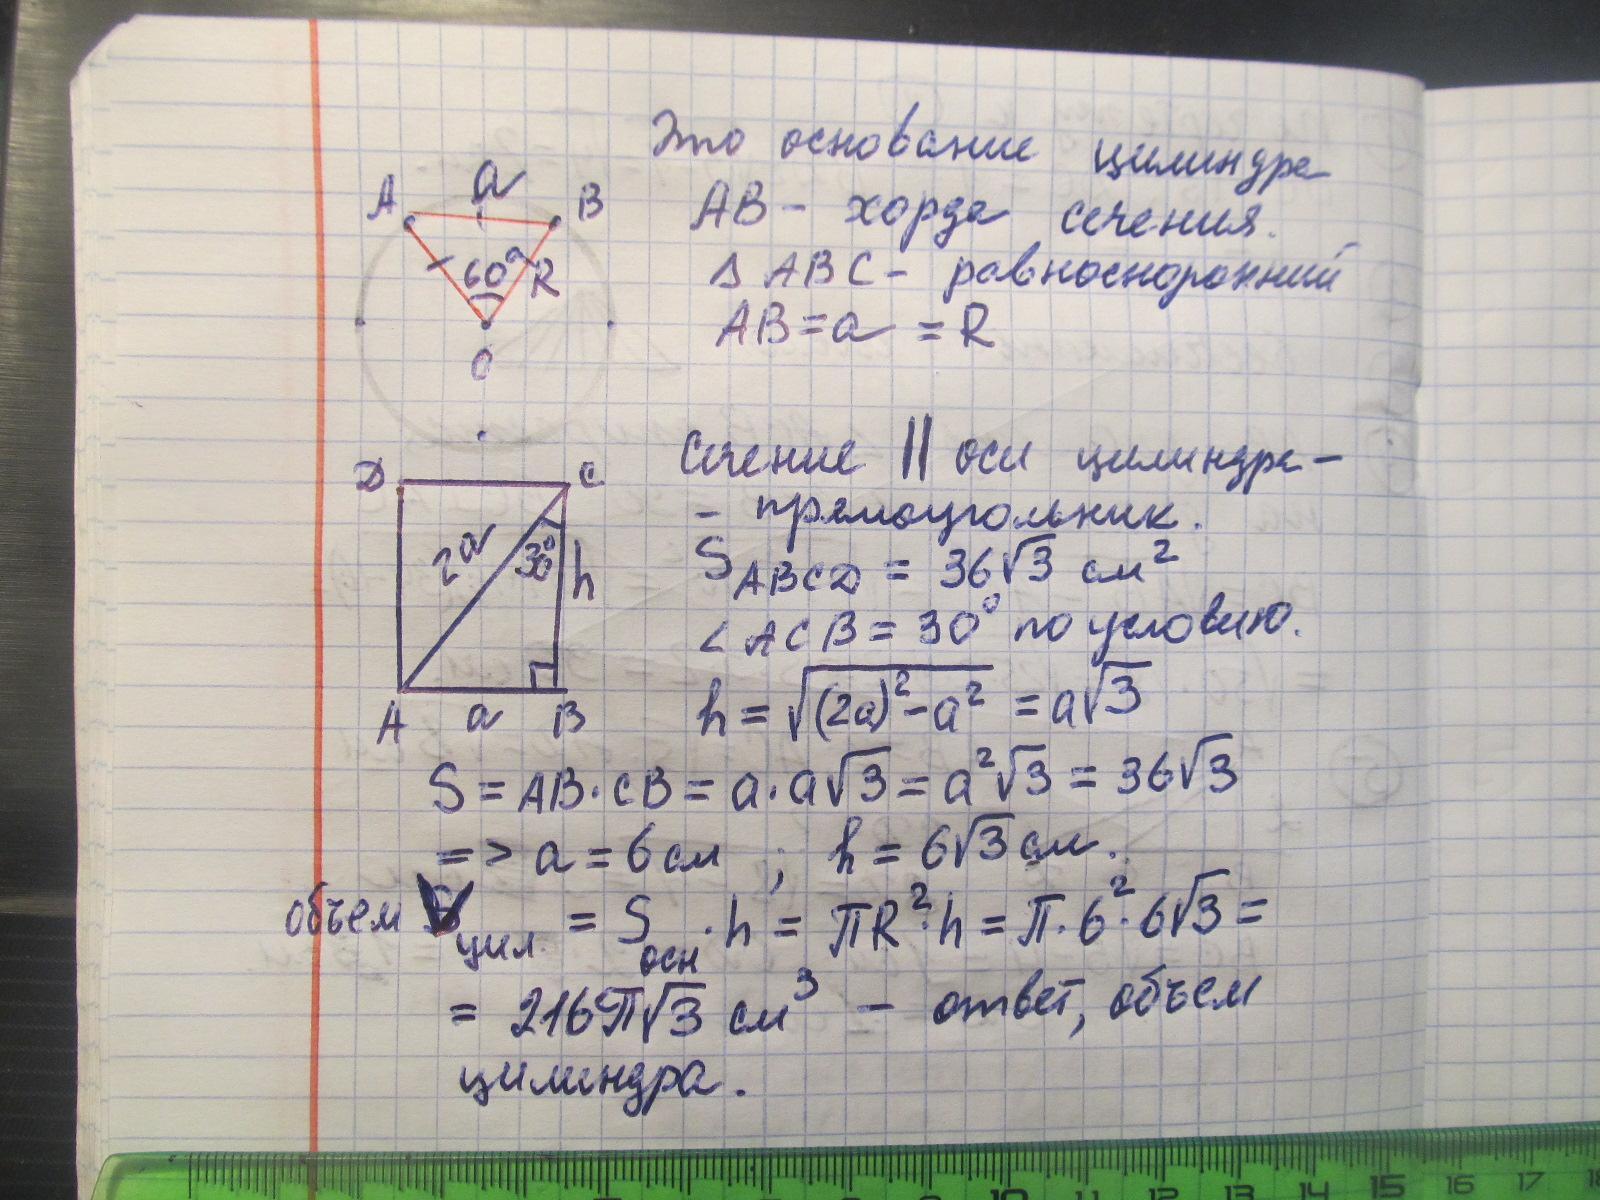 Это основание цилиндра
AB - хорда сечения.
Δ ABC - равносторонний
AB = a = R
A a B
60° R
O
Сечение || оси цилиндра -
- прямоугольник.
S ABCD = 36√3 см²
∠ ACB = 30° по условию.
h = √((2a)² - a²) = a√3
D C
2a 30° h
A a B
S = AB · CB = a · a√3 = a²√3 = 36√3
=> a = 6 см ; h = 6√3 см.
объем V цил. = S осн · h = πR² · h = π · 6² · 6√3 =
= 216π√3 см³ - ответ, объем
цилиндра.
10 11 12 13 14 15 16 17 18